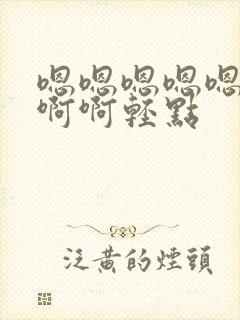 嗯嗯嗯嗯嗯
啊啊輕點
泛黄的煙頭